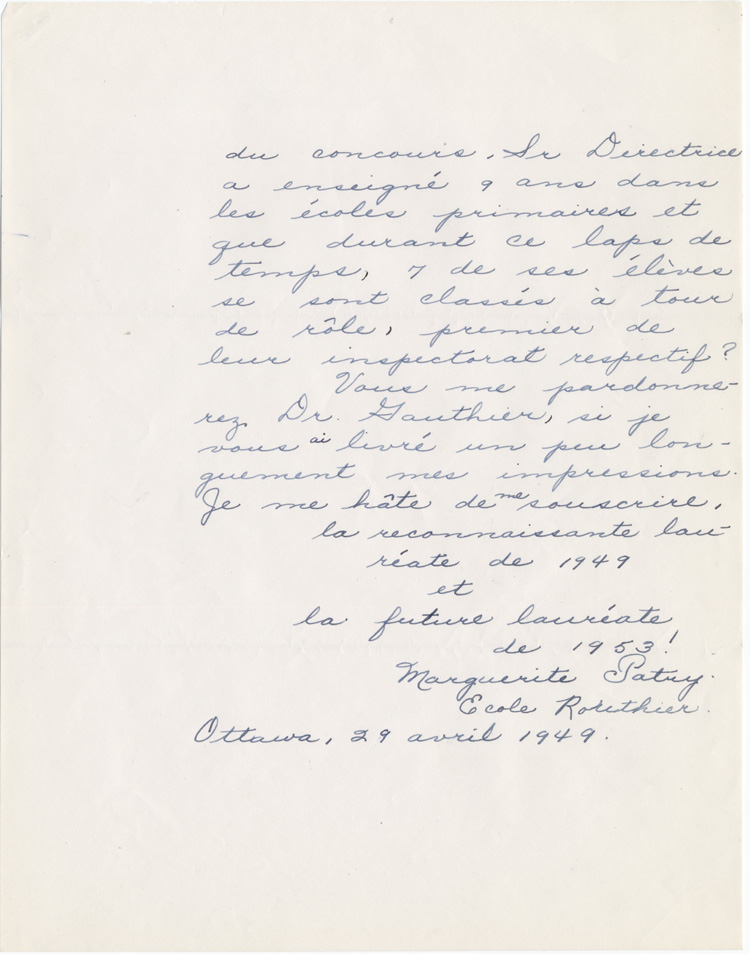 du concours, Sr Directrice
a enseigné 9 ans dans
les écoles primaires et
que durant ce laps de
temps, 7 de ses élèves
se sont classés à tour
de rôle, premier de
leur inspectorat respectif?
Vous me pardonne-
rez, Dr. Gauthier, si je
vous ai livré un peu lon-
guement mes impressions.
Je me hâte de me souscrire,
la reconnaissante lau-
réate de 1949
et
la future lauréate
de 1953!
Marguerite Patry.
École Routhier.
Ottawa, 29 avril 1949.